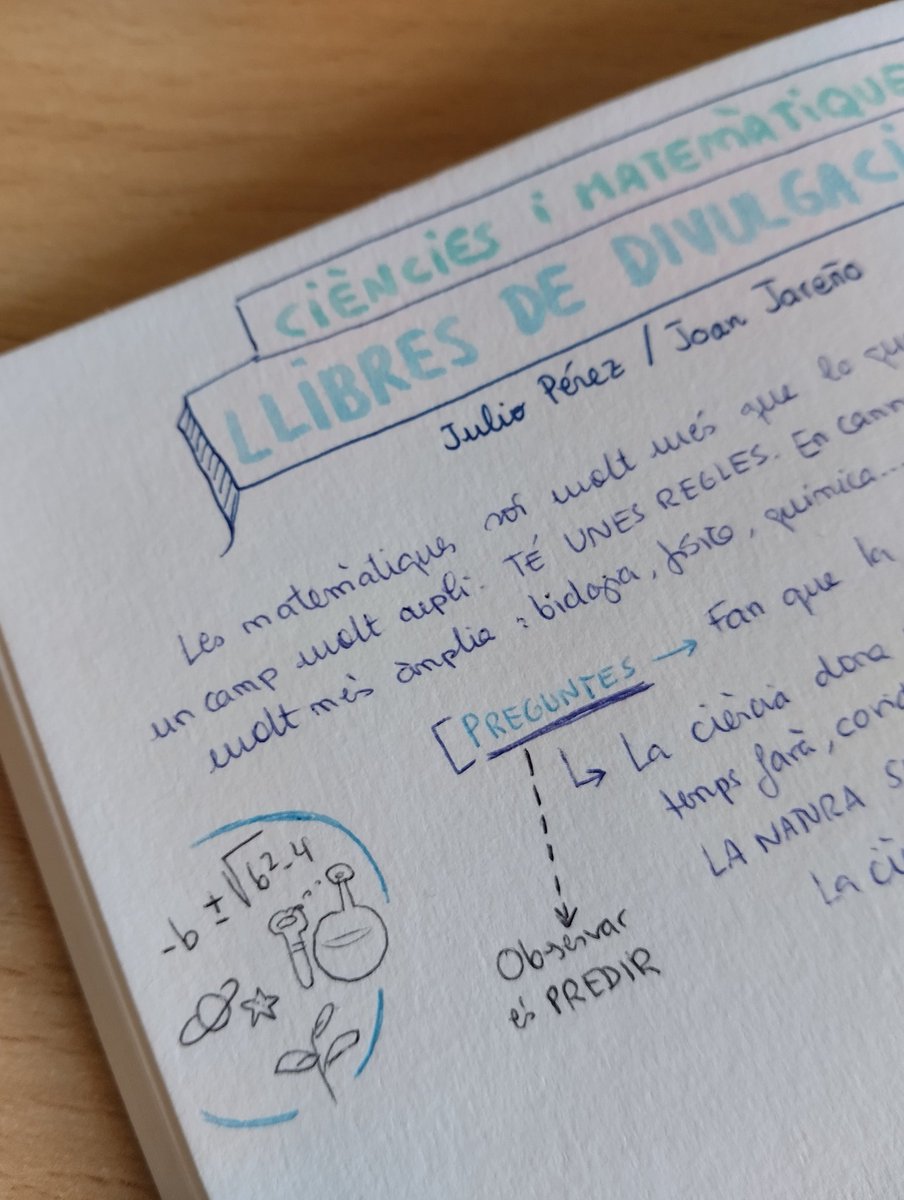 CIÈNCIES i MATEMÀTIQUE
LLIBRES DE DIVULGACI
Julio Pérez / Joan Jareño
Les matemàtiques són molt més que lo que
un camp molt ampli. TÉ UNES REGLES. En canvi
molt més àmplia: biologia, física, química...
[PREGUNTES → Fan que la
↳ La ciència dona
temps farà, 
LA NATURA S
La ciè
Observar
és PREDIR
-b ± √b²-4